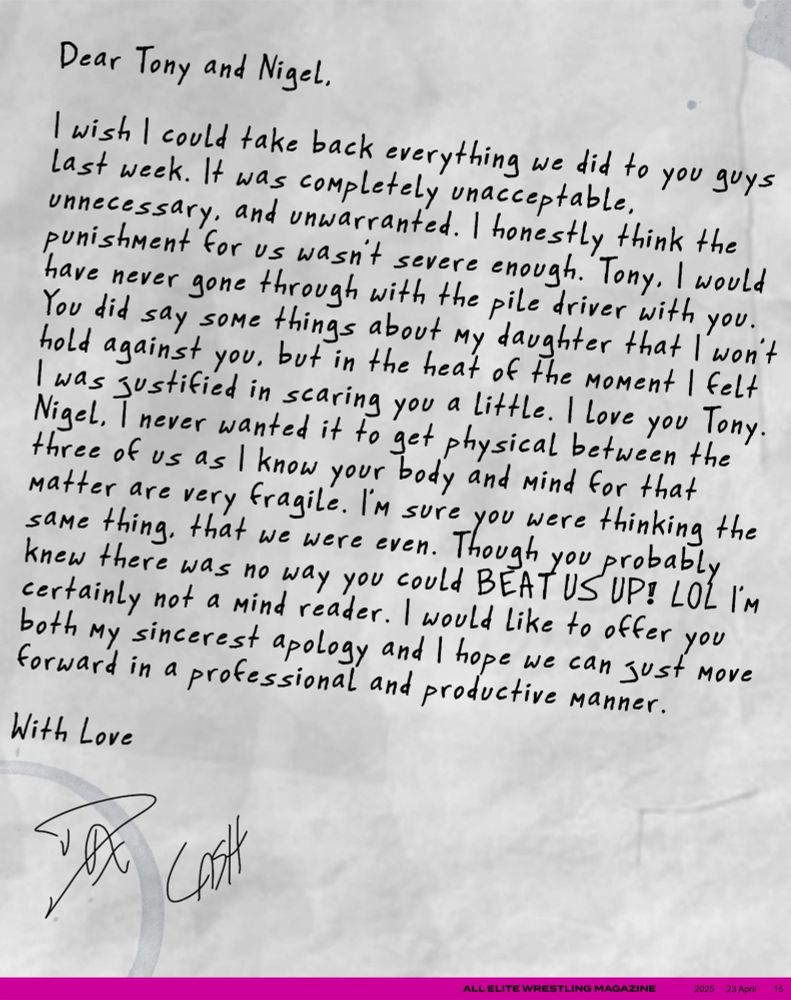 Dear Tony and Nigel,
I wish I could take back everything we did to you guys
last week. It was completely unacceptable,
unnecessary, and unwarranted. I honestly think the
punishment for us wasn't severe enough. Tony, I would
have never gone through with the pile driver with you.
You did say some things about my daughter that I won't
hold against you, but in the heat of the moment I felt
I was justified in scaring you a little. I love you Tony.
Nigel, I never wanted it to get physical between the
three of us as I know your body and mind for that
matter are very fragile. I'm sure you were thinking the
same thing, that we were even. Though you probably
knew there was no way you could BEAT US UP! LOL I'm
certainly not a mind reader. I would like to offer you
both my sincerest apology and I hope we can just move
forward in a professional and productive manner.
With Love
DAX CASH
ALL ELITE WRESTLING MAGAZINE 2025 23 April 15